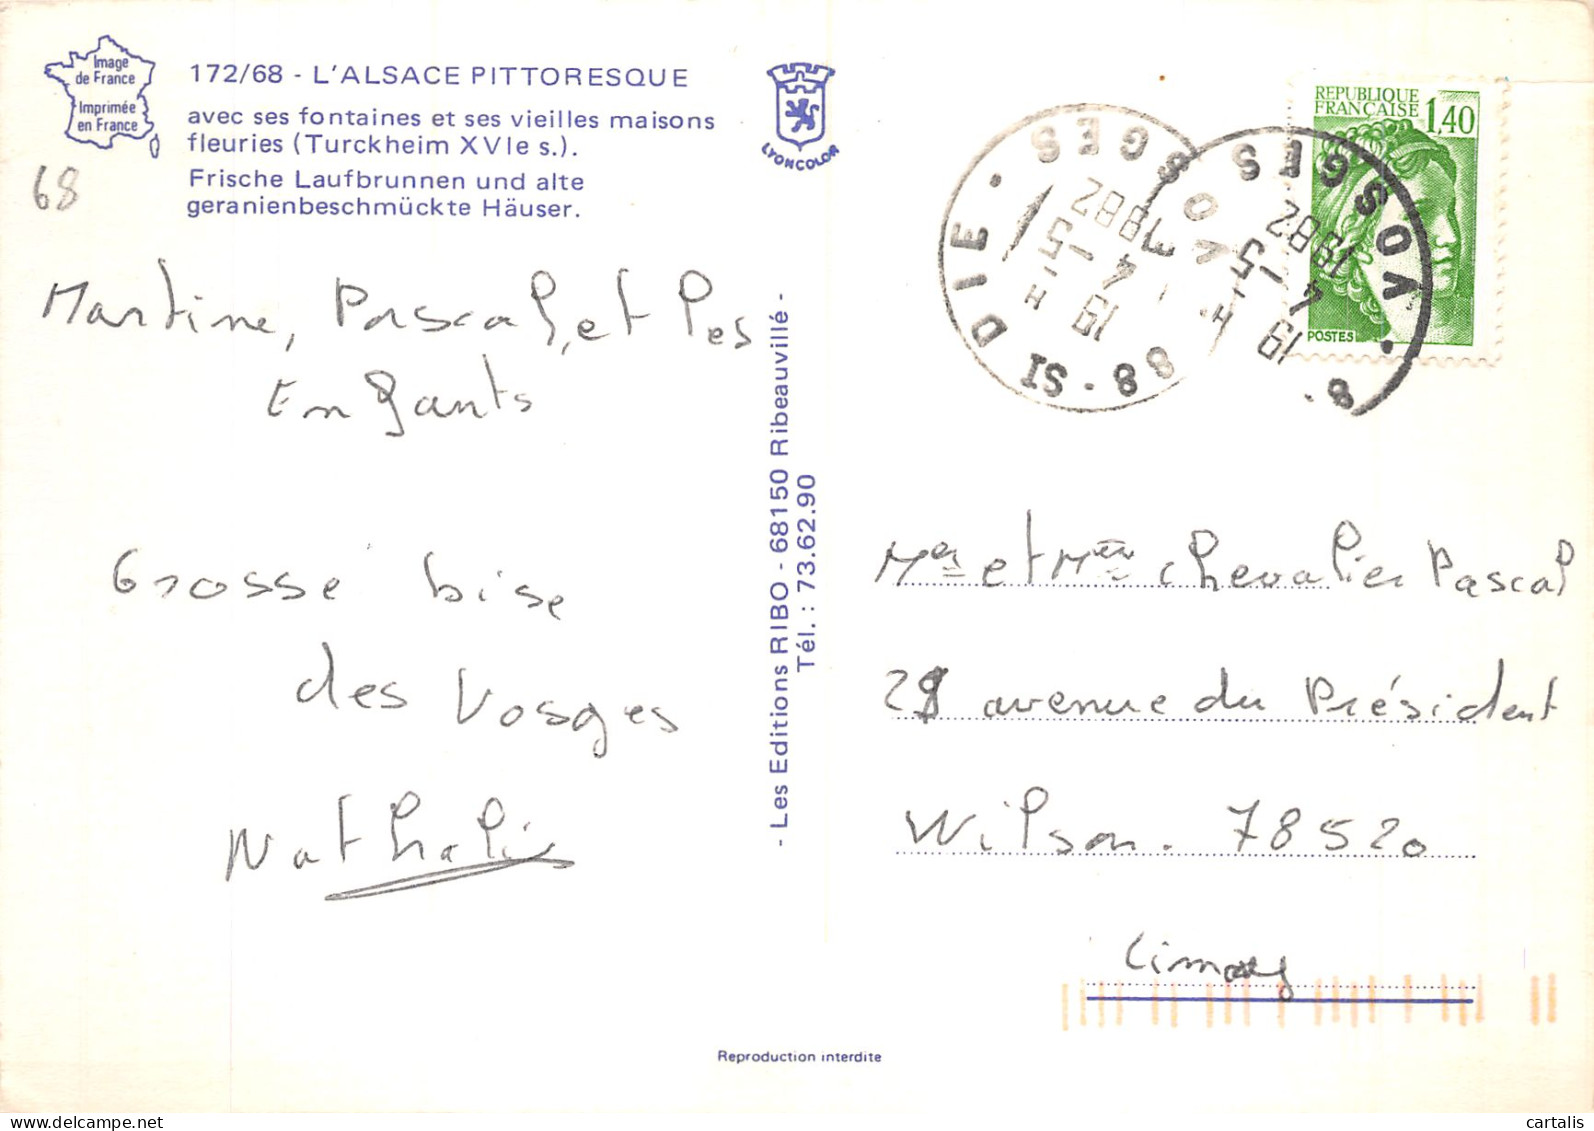 Image
de France
Imprimée
en France
172/68 - L'ALSACE PITTORESQUE
avec ses fontaines et ses vieilles maisons
fleuries (Turckheim XVIe s.).
Frische Laufbrunnen und alte
geranienbeschmückte Häuser.
68
LYONCOLOR
Martine, Pascal, et les
Enfants
Grosse bise
des Vosges
Nathalie
- Les Editions RIBO - 68150 Ribeauvillé -
Tél. : 73.62.90
REPUBLIQUE
FRANÇAISE
1,40
POSTES
88 - ST DIE . VOSGES
19 H
4 - 5
1982
VOSGES
19 H
4 - 5
1982
8
Mer et Mme Chevalier Pascal
28 avenue du Président
Wilson. 78520
Limay
Reproduction interdite
cartalis